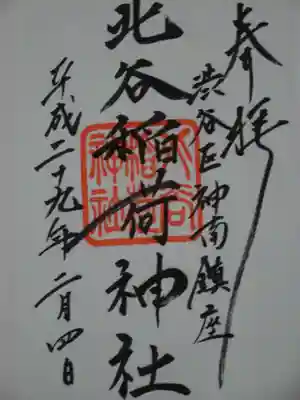 奉拝
渋谷区神南鎮座
北谷稲荷神社
平成二十九年二月四日